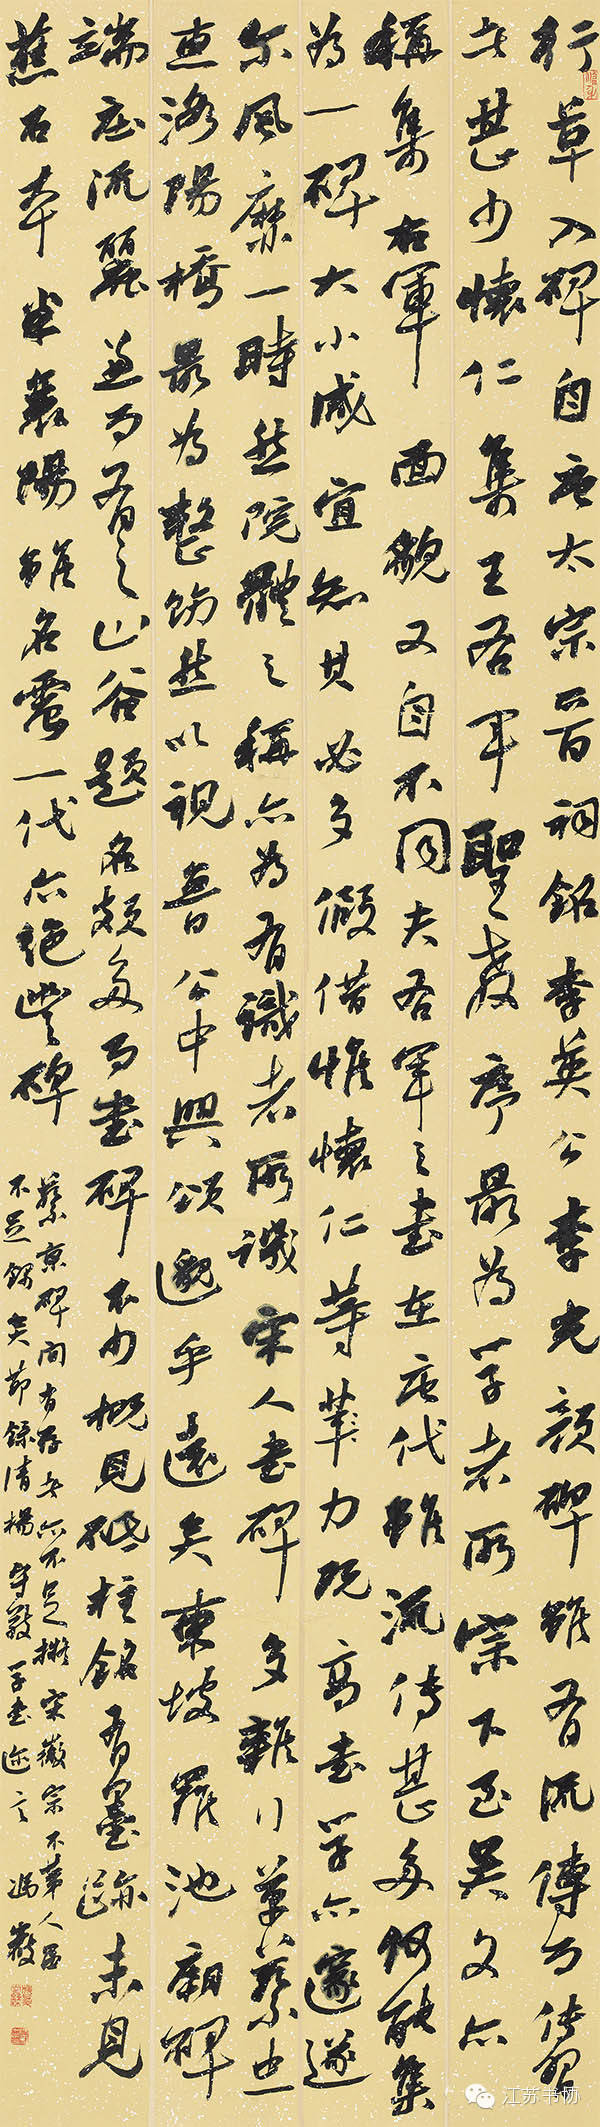 行草入碑自唐太宗晋祠銘李英公李光顔碑雖有流傳而傳習
者甚少懷仁集王右軍聖教序最為學者所宗下至吳文亦
稱集右軍面貌又自不同夫右軍之書在唐代雖流傳甚多何能集
為一碑大小咸宜知其必多假借惟懷仁等筆力既高書學亦邃遂
尔風靡一時然院體之稱亦為有識者所譏宋人書碑多雜行草蔡忠
惠洛陽橋最為整飭然以視魯公中興頌邈乎遠矣東坡羅池廟碑
端莊流麗兼而有之山谷題名頗多而書碑不少概見砥柱銘有墨跡未見
舊石本米襄陽雖名震一代亦絕豐碑
蔡京碑間有存者亦不足擬宋徽宗不革人品
不足錄矣節錄清楊守敬學書迩言 馮嚴
江苏书协